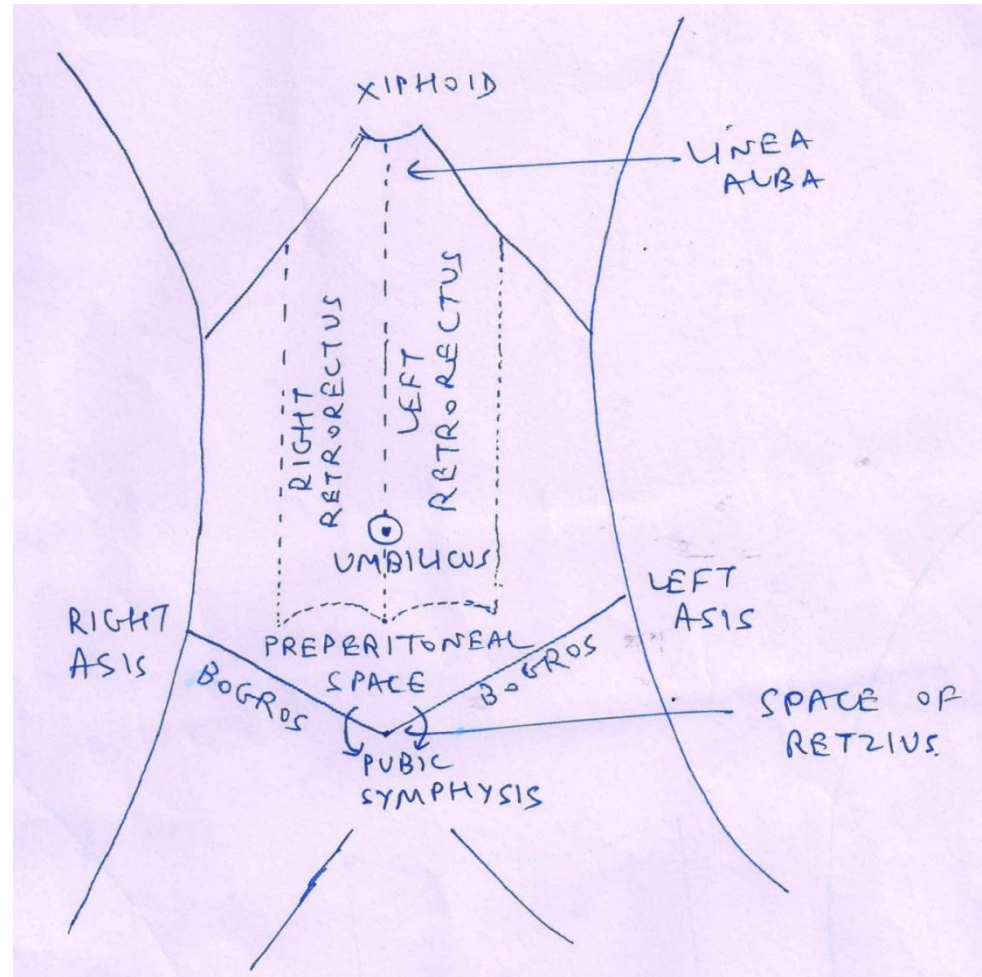 XIPHOID
LINEA
ALBA
RIGHT
RETRORECTUS
LEFT
RETRORECTUS
UMBILICUS
RIGHT
ASIS
LEFT
ASIS
PREPERITONEAL
SPACE
BOGROS
BOGROS
SPACE OF
RETZIUS.
PUBIC
SYMPHYSIS